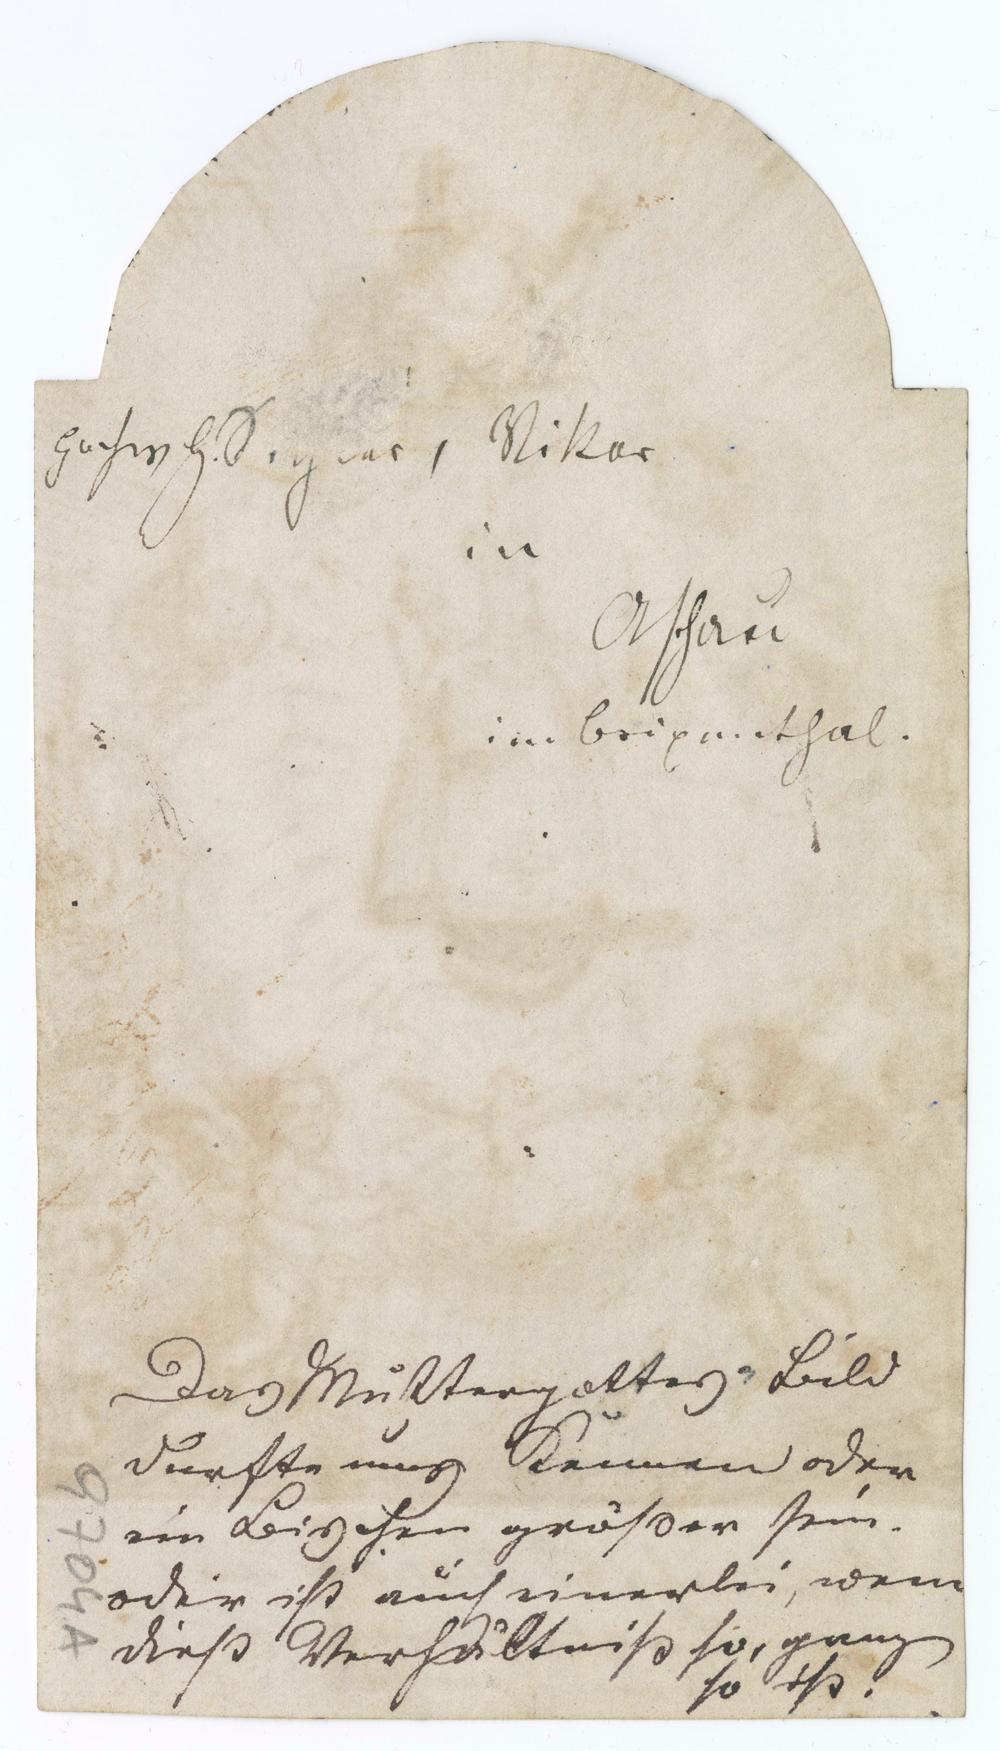 Hochw H.           , Vikar
in
Aschau
im brixenthal.
Das Muttergottes=Bild
durfte
oder
ein Bischen größer sein.
oder ist auch einerlei, wenn
dieß Verhältniß so, ganz
so ist.
9704A